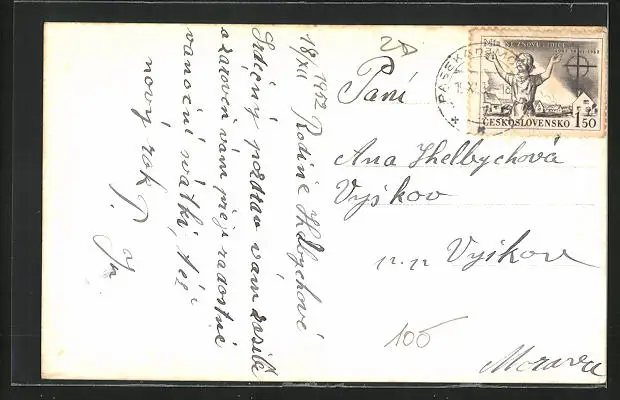 18/XII 1952 Rodině Shelbychové
Srdečný pozdrav vám zasílá
a zároveň vám přeje radostné
vánoční svátky, též
nový rok
2A
Paní
Ana Shelbychová
Vyškov
n.n Vyškov
100
Morava
PASEKA
ČESKOSLOVENSKO 1.50